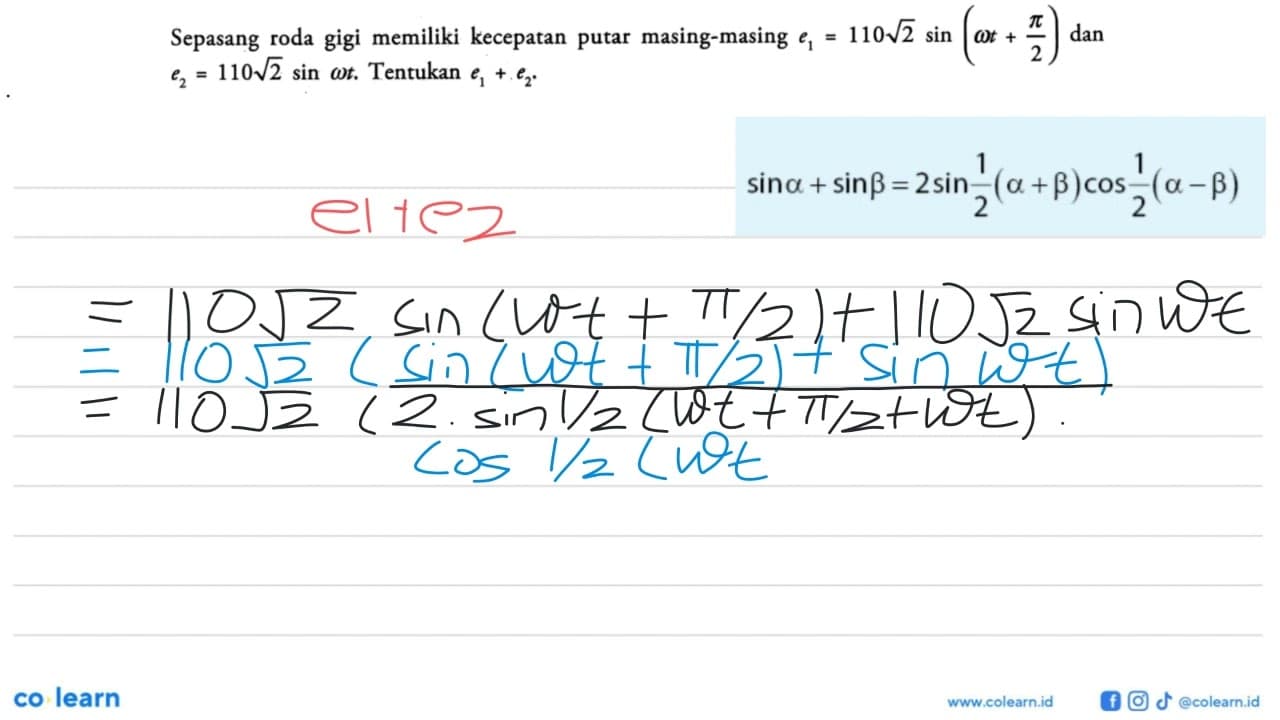 Sepasang roda gigi memiliki kecepatan putar masing-masing e₁ = 110√2 sin (ωt + π/2) dan
e₂ = 110√2 sin ωt. Tentukan e₁ + e₂.
sinα + sinβ = 2sin 1/2 (α + β) cos 1/2 (α − β)
e1 + e2
= 110√2 sin (ωt + π/2) + 110√2 sin ωt
= 110√2 (sin (ωt + π/2) + sin ωt)
= 110√2 (2. sin 1/2 (ωt + π/2 + ωt) .
cos 1/2 (ωt
co learn
www.colearn.id @colearn.id